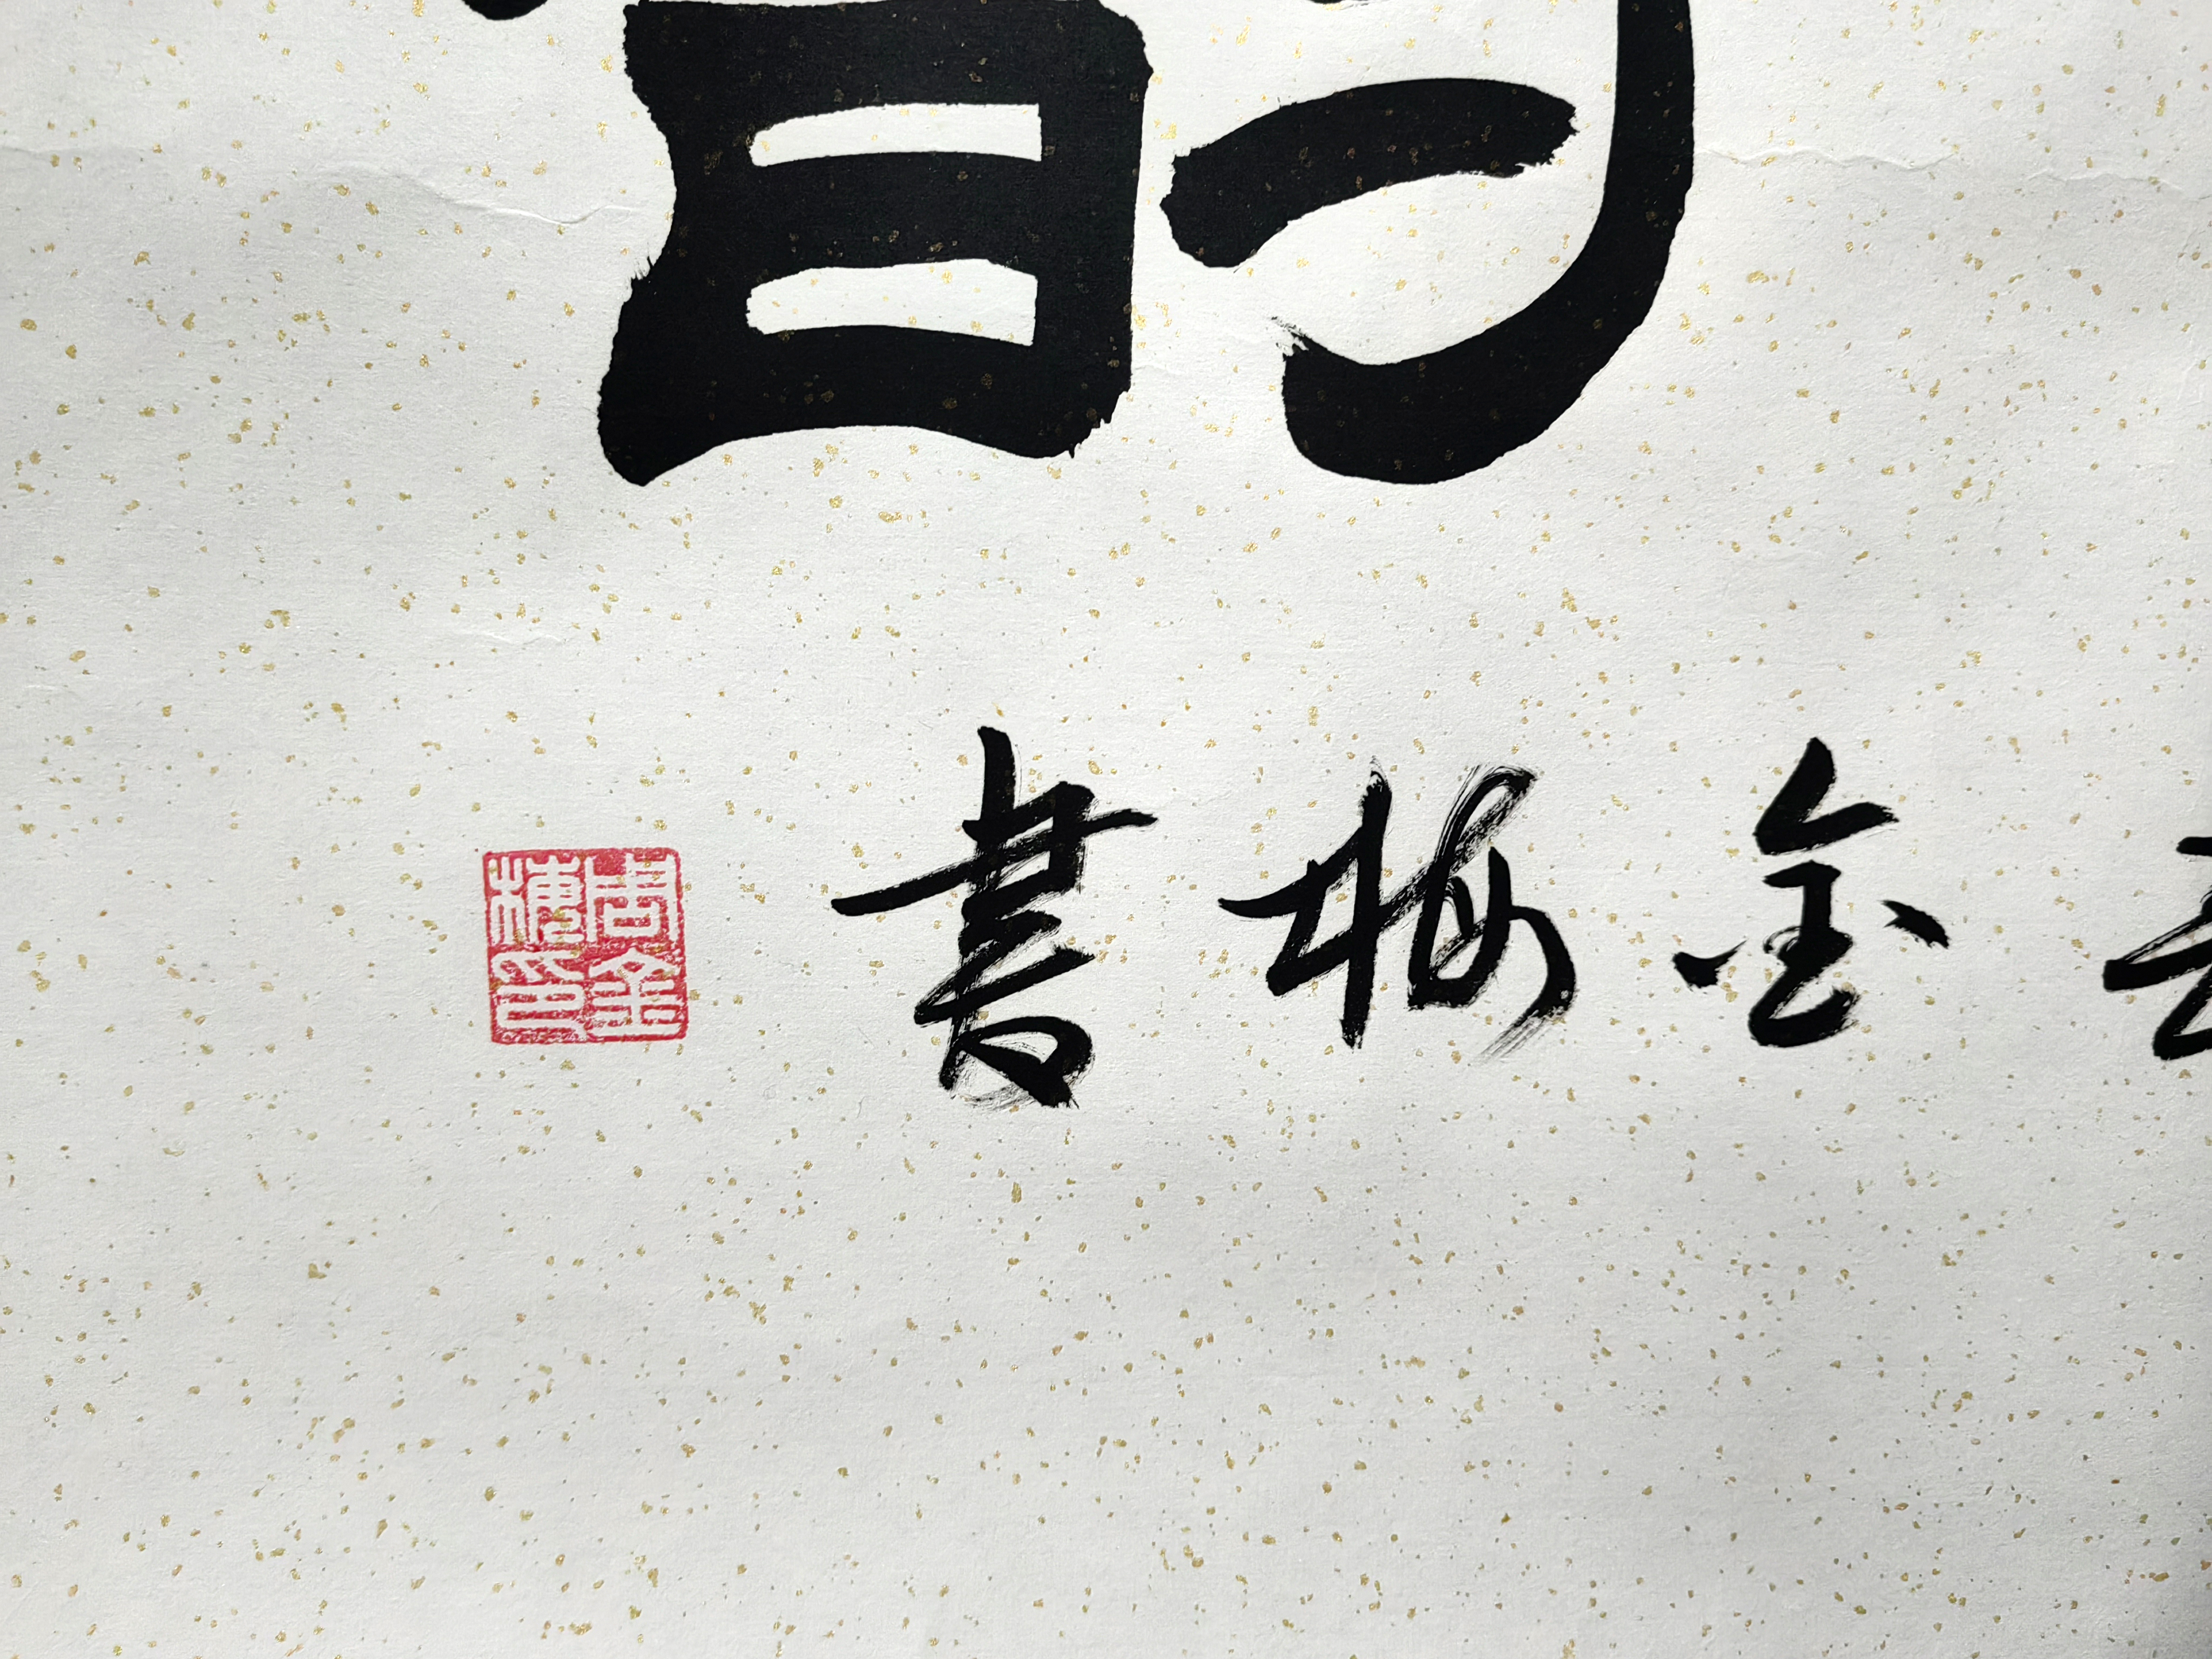 金梅書
周金
梅印